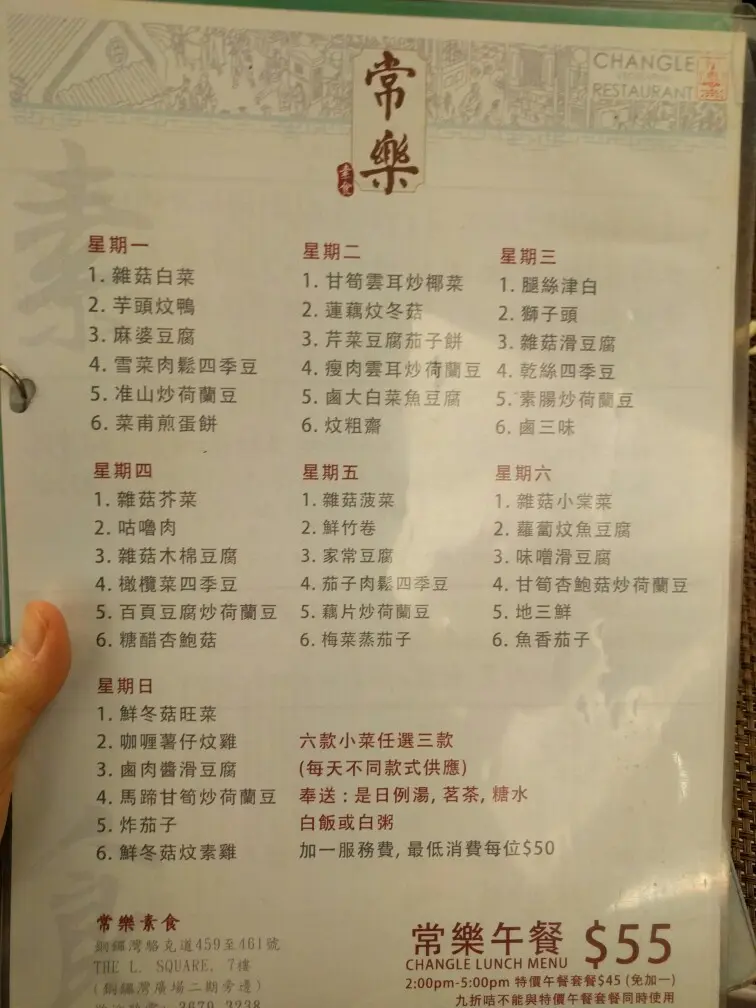 CHANGLE
RESTAURANT
常樂
素食
星期一
1. 雜菇白菜
2. 芋頭炆鴨
3. 麻婆豆腐
4. 雪菜肉鬆四季豆
5. 准山炒荷蘭豆
6. 菜甫煎蛋餅
星期二
1. 甘筍雲耳炒椰菜
2. 蓮藕炆冬菇
3. 芹菜豆腐茄子餅
4. 瘦肉雲耳炒荷蘭豆
5. 鹵大白菜魚豆腐
6. 炆粗齋
星期三
1. 腿絲津白
2. 獅子頭
3. 雜菇滑豆腐
4. 乾絲四季豆
5. 素腸炒荷蘭豆
6. 鹵三味
星期四
1. 雜菇芥菜
2. 咕嚕肉
3. 雜菇木棉豆腐
4. 橄欖菜四季豆
5. 百頁豆腐炒荷蘭豆
6. 糖醋杏鮑菇
星期五
1. 雜菇菠菜
2. 鮮竹卷
3. 家常豆腐
4. 茄子肉鬆四季豆
5. 藕片炒荷蘭豆
6. 梅菜蒸茄子
星期六
1. 雜菇小棠菜
2. 蘿蔔炆魚豆腐
3. 味噌滑豆腐
4. 甘筍杏鮑菇炒荷蘭豆
5. 地三鮮
6. 魚香茄子
星期日
1. 鮮冬菇旺菜
2. 咖喱薯仔炆雞
3. 鹵肉醬滑豆腐
4. 馬蹄甘筍炒荷蘭豆
5. 炸茄子
6. 鮮冬菇炆素雞
六款小菜任選三款
(每天不同款式供應)
奉送 : 是日例湯, 茗茶, 糖水
白飯或白粥
加一服務費, 最低消費每位$50
常樂素食
銅鑼灣駱克道459至461號
THE L. SQUARE, 7樓
(銅鑼灣廣場二期旁邊)
3679 3238
常樂午餐 $55
CHANGLE LUNCH MENU
2:00pm-5:00pm 特價午餐套餐$45 (免加一)
九折咭不能與特價午餐套餐同時使用